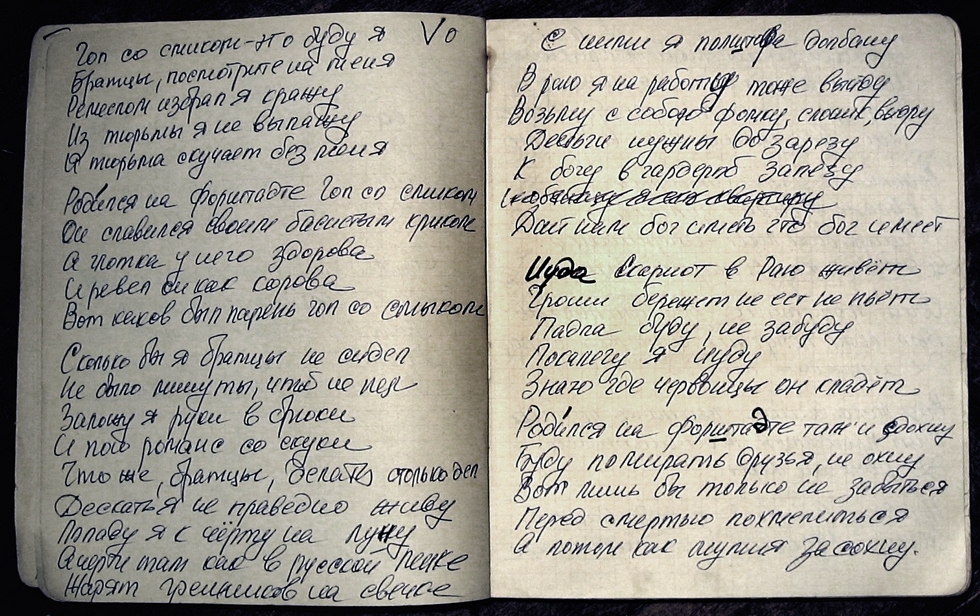 Vо
Гоп со смыком-это буду я
Братцы, посмотрите на меня
Ремеслом избрал я кражу
Из тюрьмы я не вылажу
И тюрьма скучает без меня
Родился на форштадте Гоп со смыком
Он славился своим басистым криком
А глотка у него здорова
И ревел он как корова
Вот каков был парень гоп со смыком
Сколько бы я братцы не сидел
Не было минуты, чтоб не пел
Заложу я руки в брюки
И пою романс со скуки
Что же, братцы, делать столько дел
Дескать я не праведно живу
Попаду я к чёрту на луну
А черти там как в русской печке
Жарят грешников на свечке
С ними я полштофа долбану
В раю я на работу тоже выйду
Возьму с собою фомку, смык, выдру
Деньги нужны до зарезу
К богу в гардероб залезу
Дай нам бог иметь что бог имеет
Иуда Скариот в Раю живёт
Гроши бережёт не ест не пьёт
Падла буду, не забуду
Покалечу я иуду
Знаю где червонцы он кладёт
Родился на форштадте там и сдохну
Буду помирать друзья, не охну
Вот лишь бы только не забыться
Перед смертью похмелиться
А потом как мумия засохну.